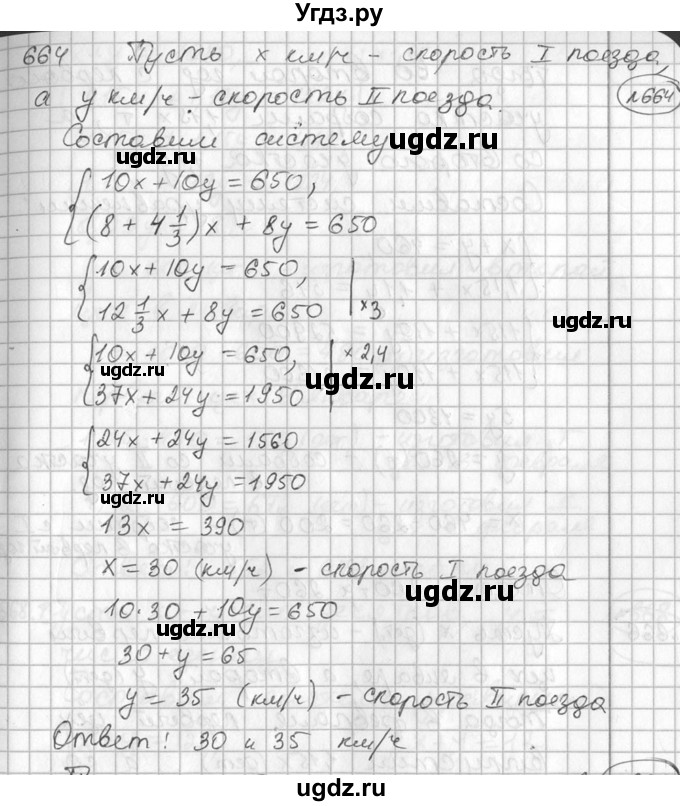 Угдз.ру
664 Пусть x км/ч - скорость I поезда,
а y км/ч - скорость II поезда.
№664
Составим систему
ugdz.ru ugdz.ru
10x + 10y = 650,
(8 + 4 1/3)x + 8y = 650
ugdz.ru
10x + 10y = 650,
12 1/3 x + 8y = 650 | x3
ugdz.ru
10x + 10y = 650, | x 2,4
ugdz.ru ugdz.ru
37x + 24y = 1950
24x + 24y = 1560
37x + 24y = 1950
ugdz.ru
13x = 390
x = 30 (км/ч) - скорость I поезда
ugdz.ru
10·30 + 10y = 650
ugdz.ru
30 + y = 65
y = 35 (км/ч) - скорость II поезда
Ответ: 30 и 35 км/ч
ugdz.ru ugdz.ru